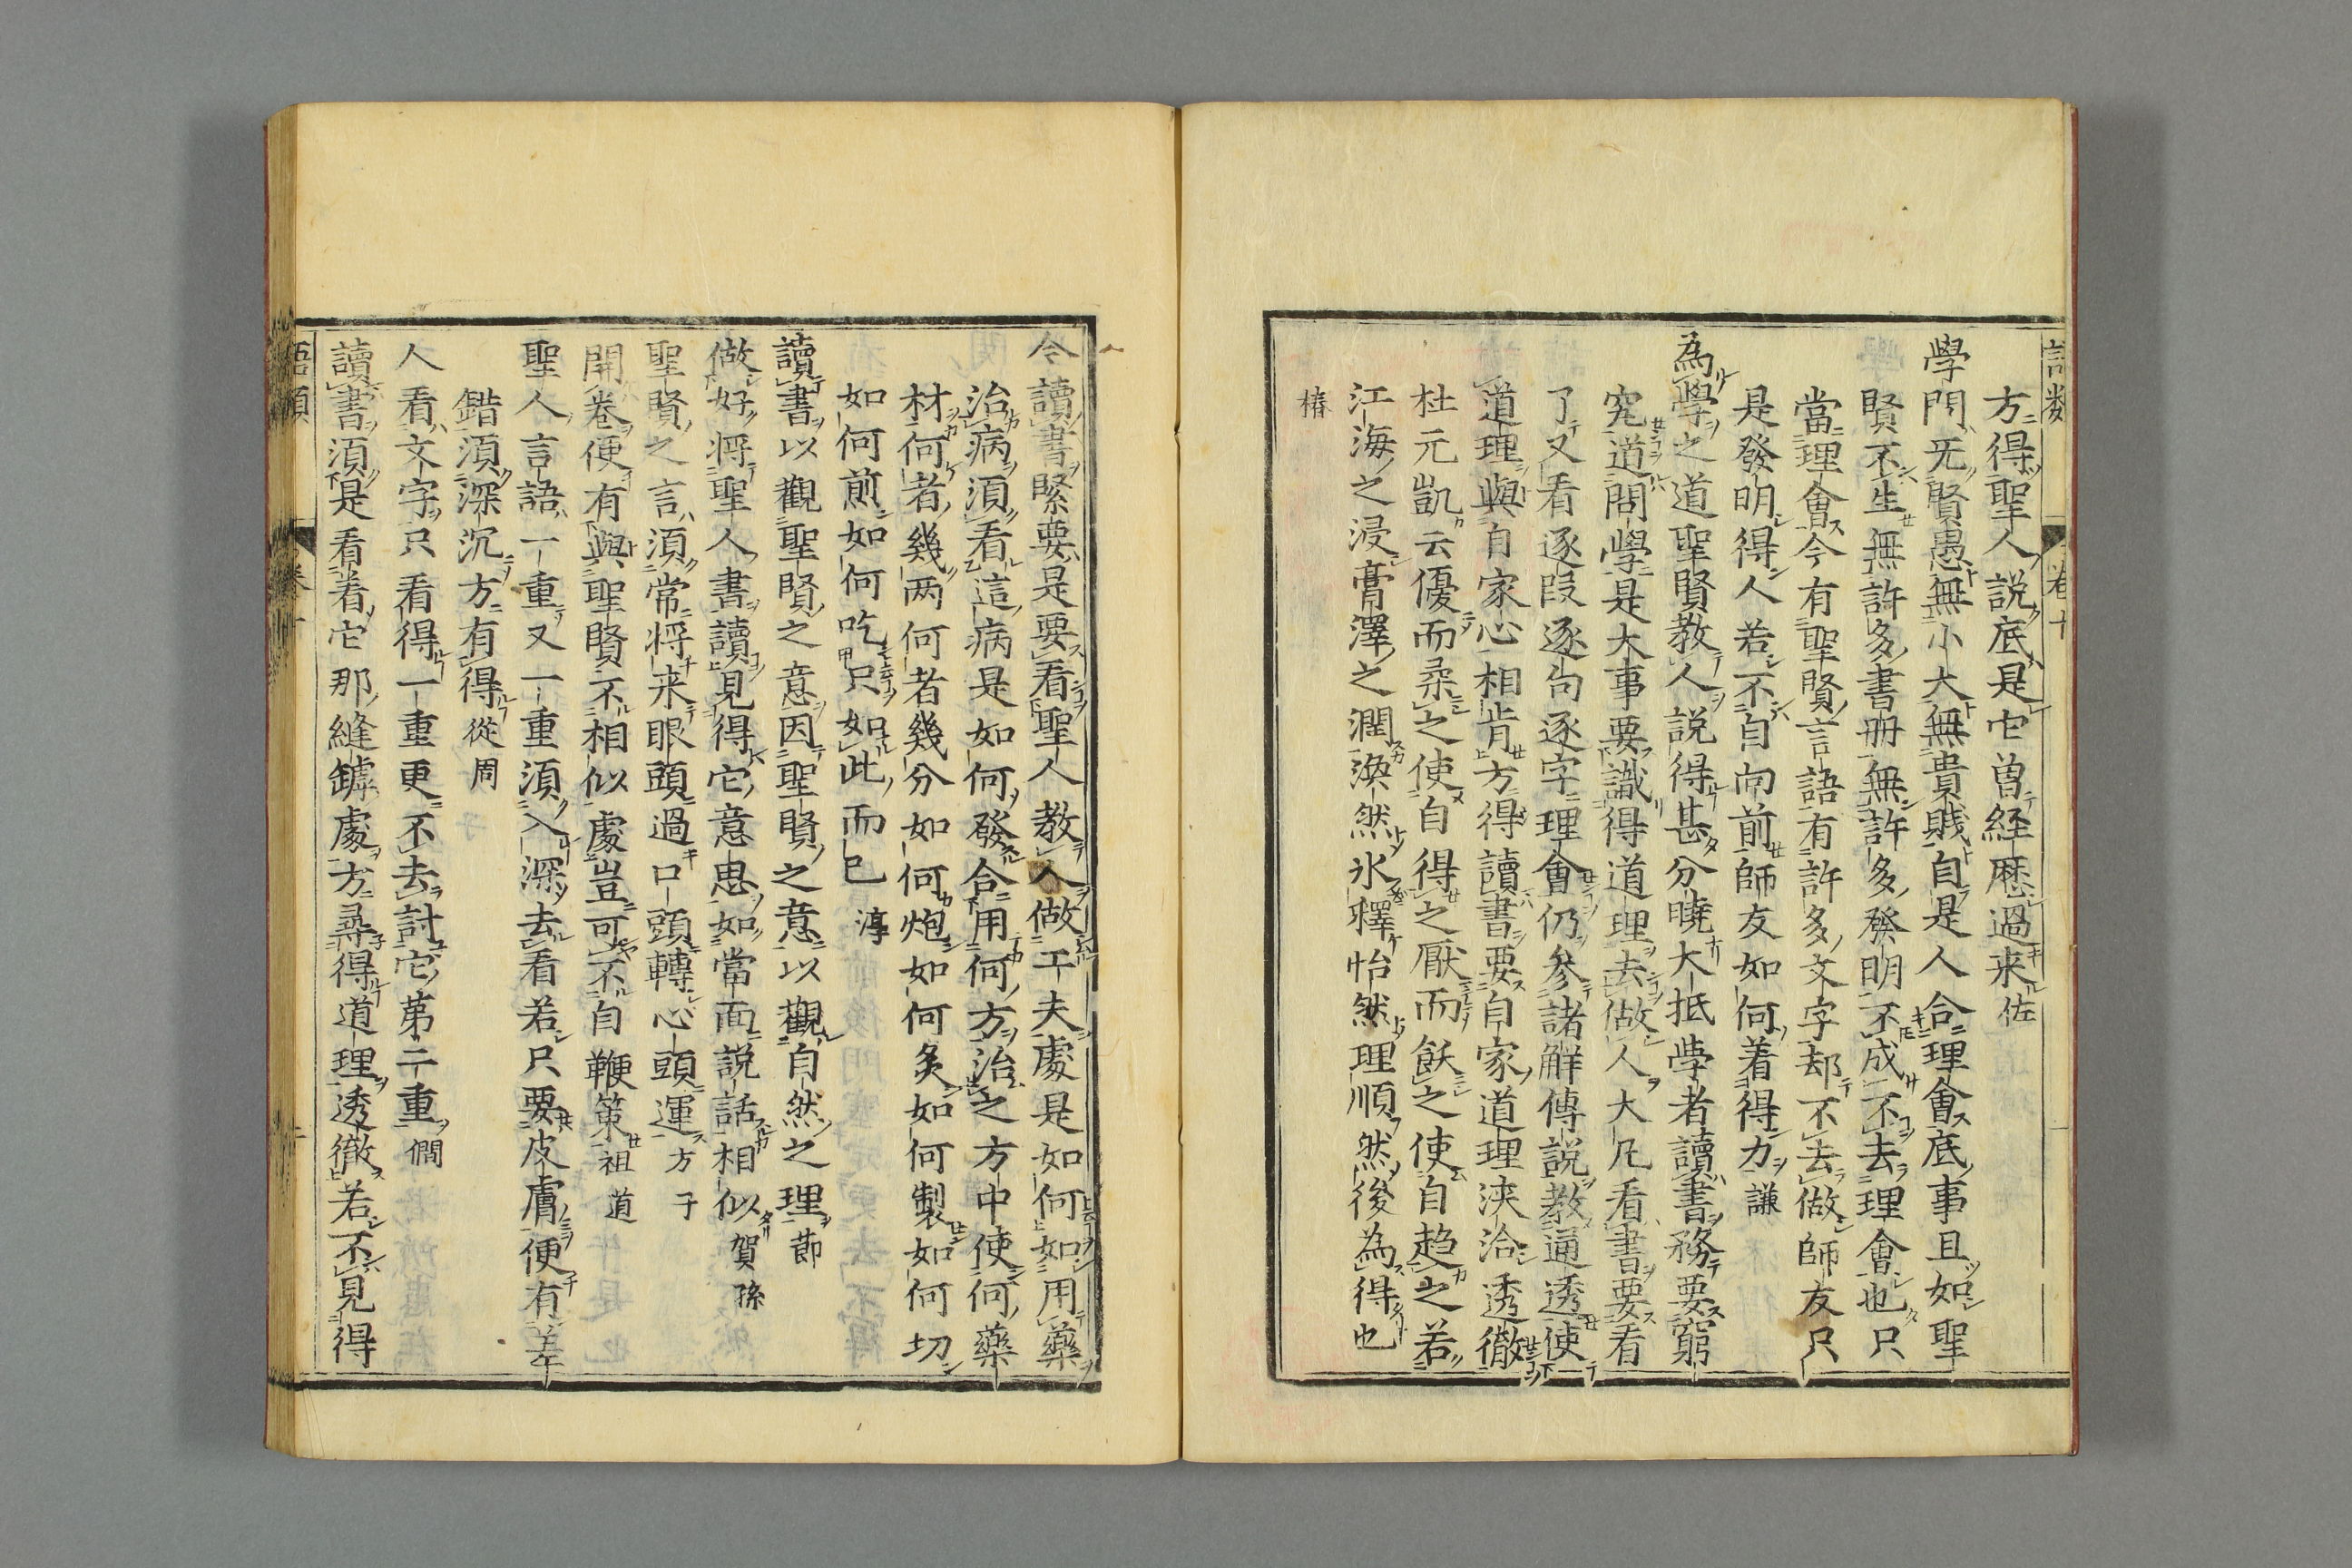 語類
卷十
方得聖人說底是它曽経歷過来佐
學問旡賢愚無小大無貴賤自是人合理會底事且如聖
賢不生無許多書冊無許多發明不成不去理會也只
當理會今有聖賢言語有許多文字却不去做師友只
是發明得人若不自向前師友如何着得力謙
為學之道聖賢教人說得甚分曉大抵學者讀書務要窮
究道問學是大事要識得道理去做人大凡看書要看
了又看逐叚逐句逐字理會仍參諸解傳說教通透使
道理與自家心相肯方得讀書要自家道理浹洽透徹
杜元凱云優而柔之使自得之厭而飫之使自趋之若
江海之浸膏澤之潤渙然氷釋怡然理順然後為得也
椿
今讀書緊要是要看聖人教人做工夫處是如何如用藥
治病須看這病是如何發合用何方治之方中使何藥
材何者幾两何者幾分如何炮如何炙如何製如何切
如何煎如何吃只如此而已淳
讀書以觀聖賢之意因聖賢之意以觀自然之理節
做好将聖人書讀見得它意思如當面說話相似賀孫
聖賢之言須常将来眼頭過口頭轉心頭運方子
開卷便有與聖賢不相似處豈可不自鞭策祖道
聖人言語一重又一重須入深去看若只要皮膚便有差
錯須深沉方有得從周
人看文字只看得一重更不去討它苐二重僩
讀書須是看着它那縫罅處方尋得道理透徹若不見得
語類
卷十